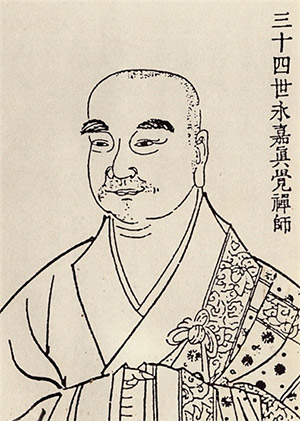 三十四世永嘉眞覺禪師